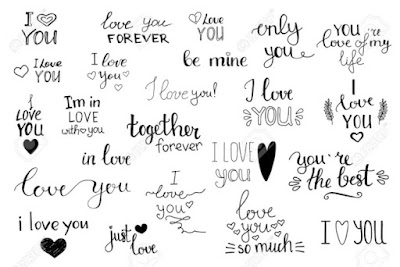 I
YOU
love you
FOREVER
I
Love
YOU
only
you
you're
love of my
life
I Love
YOU
I
love
you
be mine
I
LOVE
YOU
I'm in
LOVE
with you
I love you!
I love
YOU
I
LOVE
YOU
together
forever
in love
I LOVE
YOU
you're
the best
love you
I
love
you
i love you
just
love
love
you
so much
I YOU